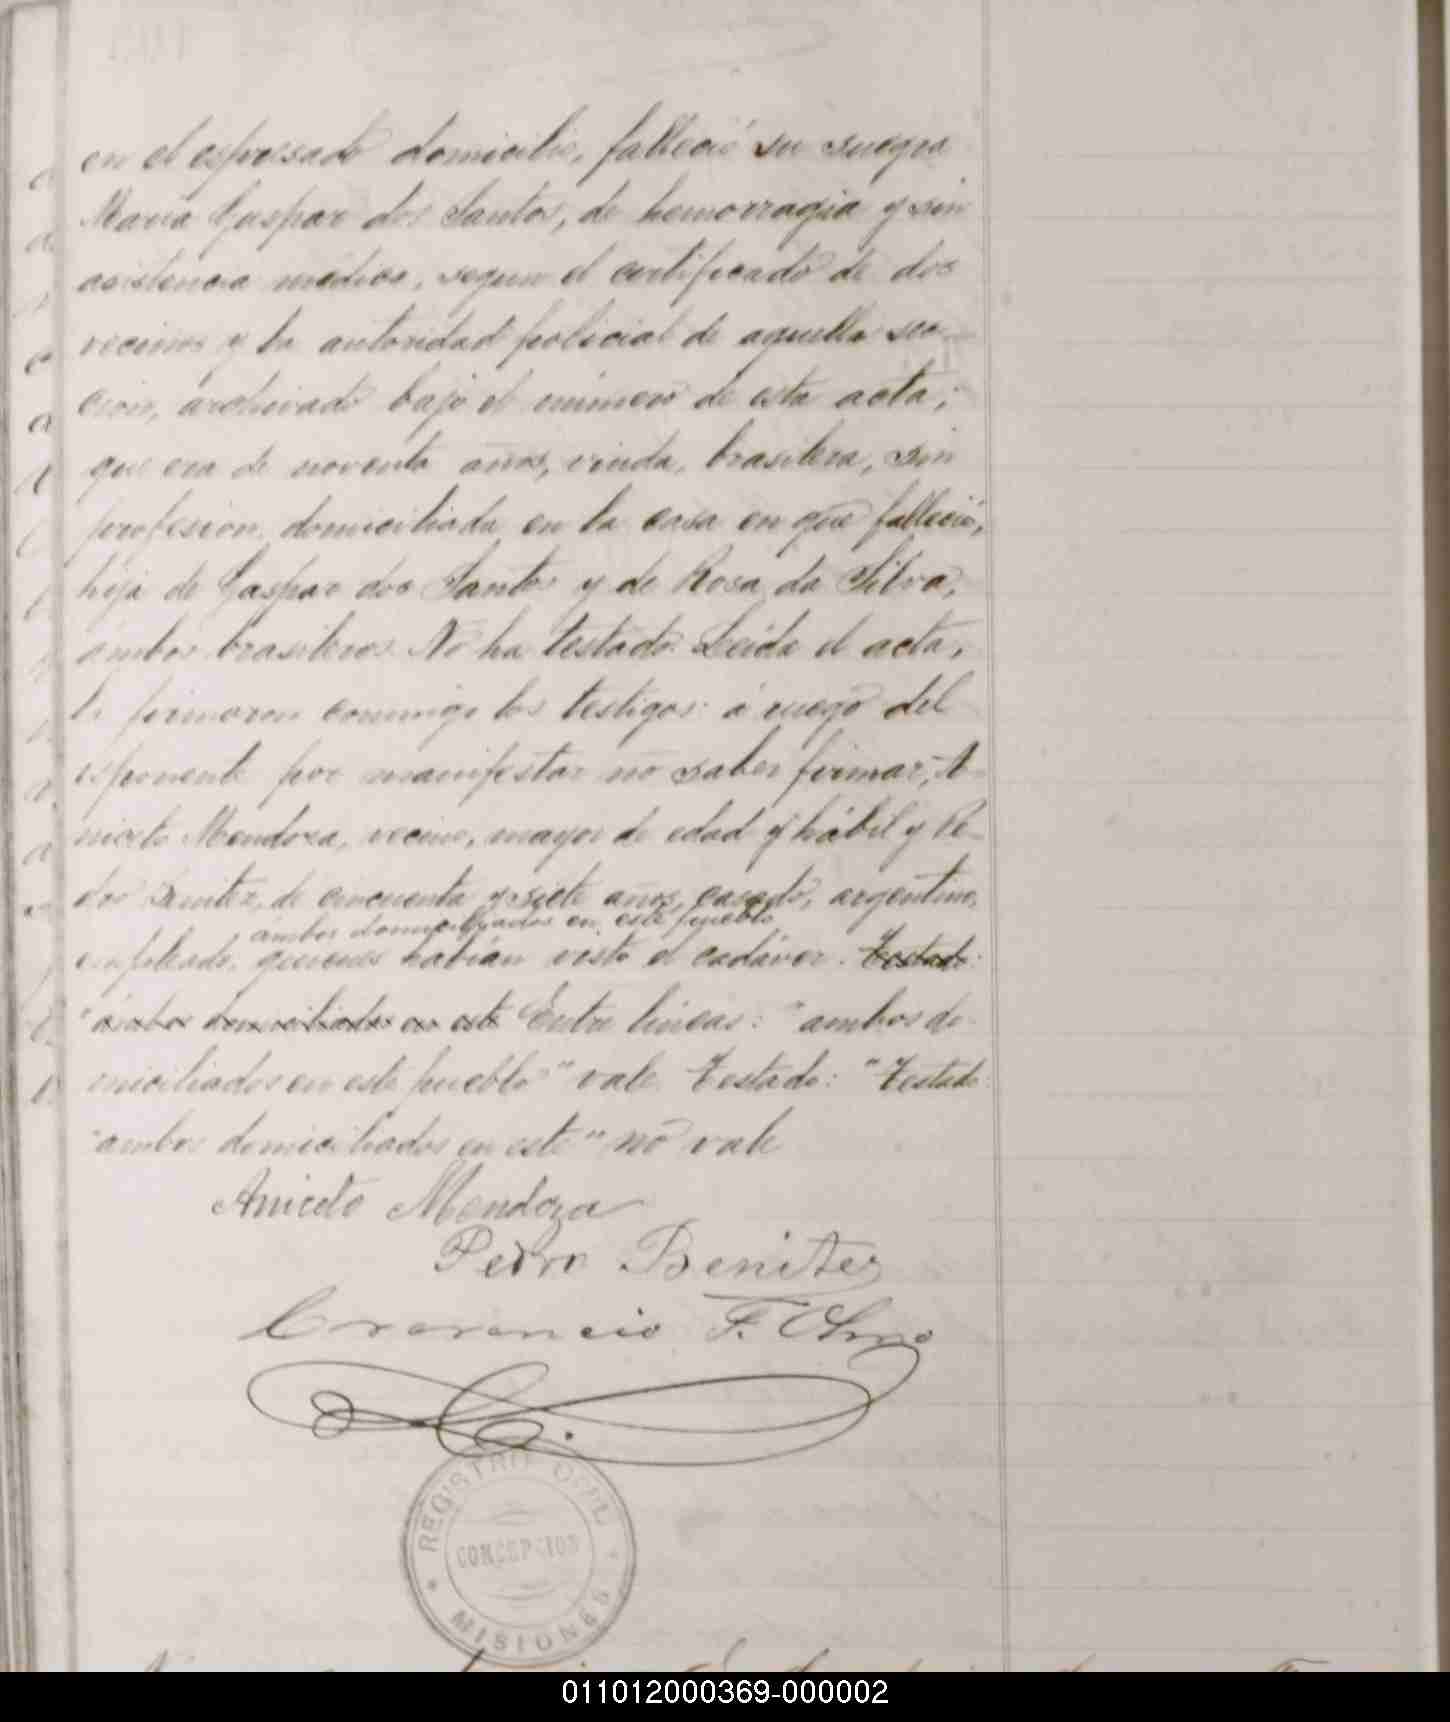 en el espresado domicilio, falleció su suegra
Maria Gaspar dos Santos, de hemorragia y sin
asistencia médica, segun el certificado de dos
vecinos y la autoridad policial de aquella sec-
cion, archivado bajo el número de esta acta;
que era de noventa años, viuda, brasilera, sin
profesion, domiciliada en la casa en que falleció,
hija de Gaspar dos Santos y de Rosa da Silva,
ámbos brasileros. No ha testado. Leida el acta,
la firmaron conmigo los testigos: á ruego del
esponente por manifestar no saber firmar, A-
niceto Mendoza, vecino, mayor de edad y hábil y Pe-
dro Benitez, de cincuenta y siete años, casado, argentino,
ambos domiciliados en este pueblo
empleado, quienes habian visto el cadáver. Testado:
"ámbos domiciliados en este Entre lineas: "ambos do-
miciliados en este pueblo" vale. Testado: "Testado:
"ambos domiciliados en este" no vale
Aniceto Mendoza
Pedro Benitez
F. Olmo
REGISTRO CIVIL
CONCEPCION
MISIONES
011012000369-000002